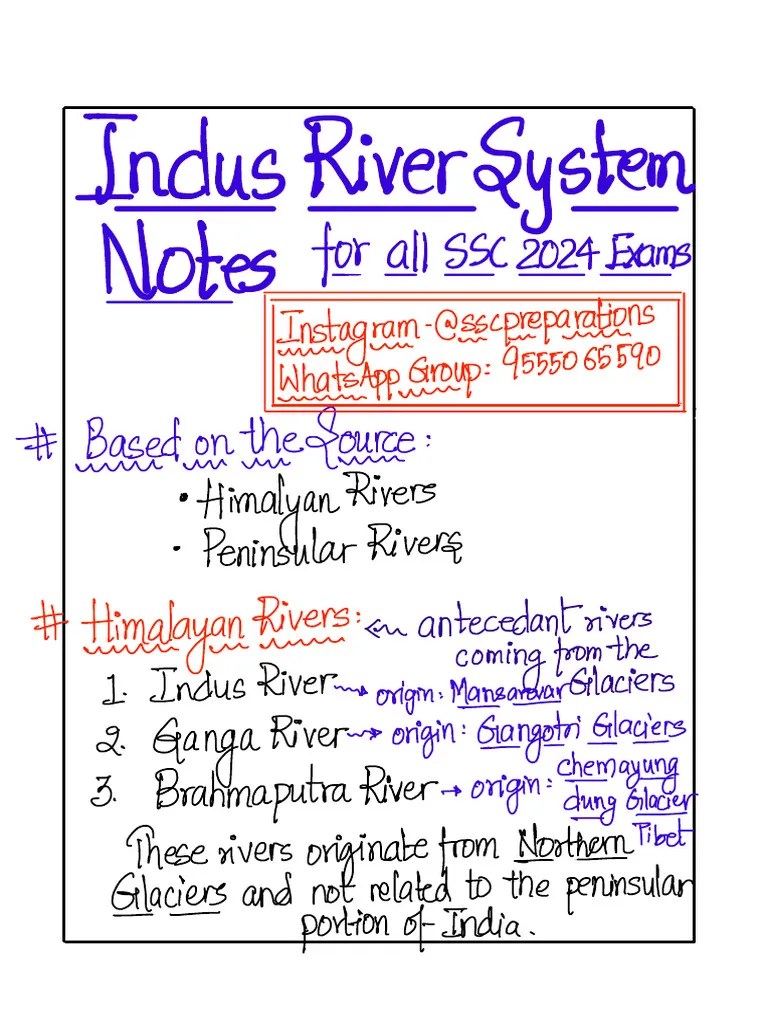 Indus River System
Notes for all SSC 2024 Exams
Instagram - @sscpreparations
WhatsApp Group: 9555065590
# Based on the Source:
• Himalyan Rivers
• Peninsular Rivers
# Himalayan Rivers: ← antecedant rivers
coming from the
1. Indus River → origin: Mansarovar Glaciers
2. Ganga River → origin: Gangotri Glaciers
3. Brahmaputra River → origin: chemayung
dung Glacier
Tibet
These rivers originate from Northern
Glaciers and not related to the peninsular
portion of India.